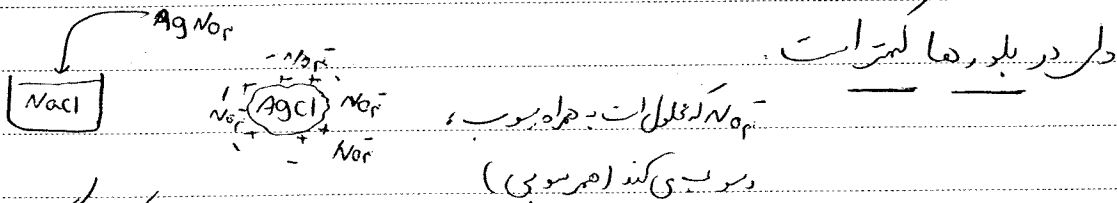 ولی در بلورها کمتر است.
AgNO₃
NaCl
AgCl
NO₃⁻
NO₃⁻
NO₃⁻
NO₃⁻
NO₃⁻ که محلول است به همراه رسوب،
رسوب می کند (هم رسوبی)